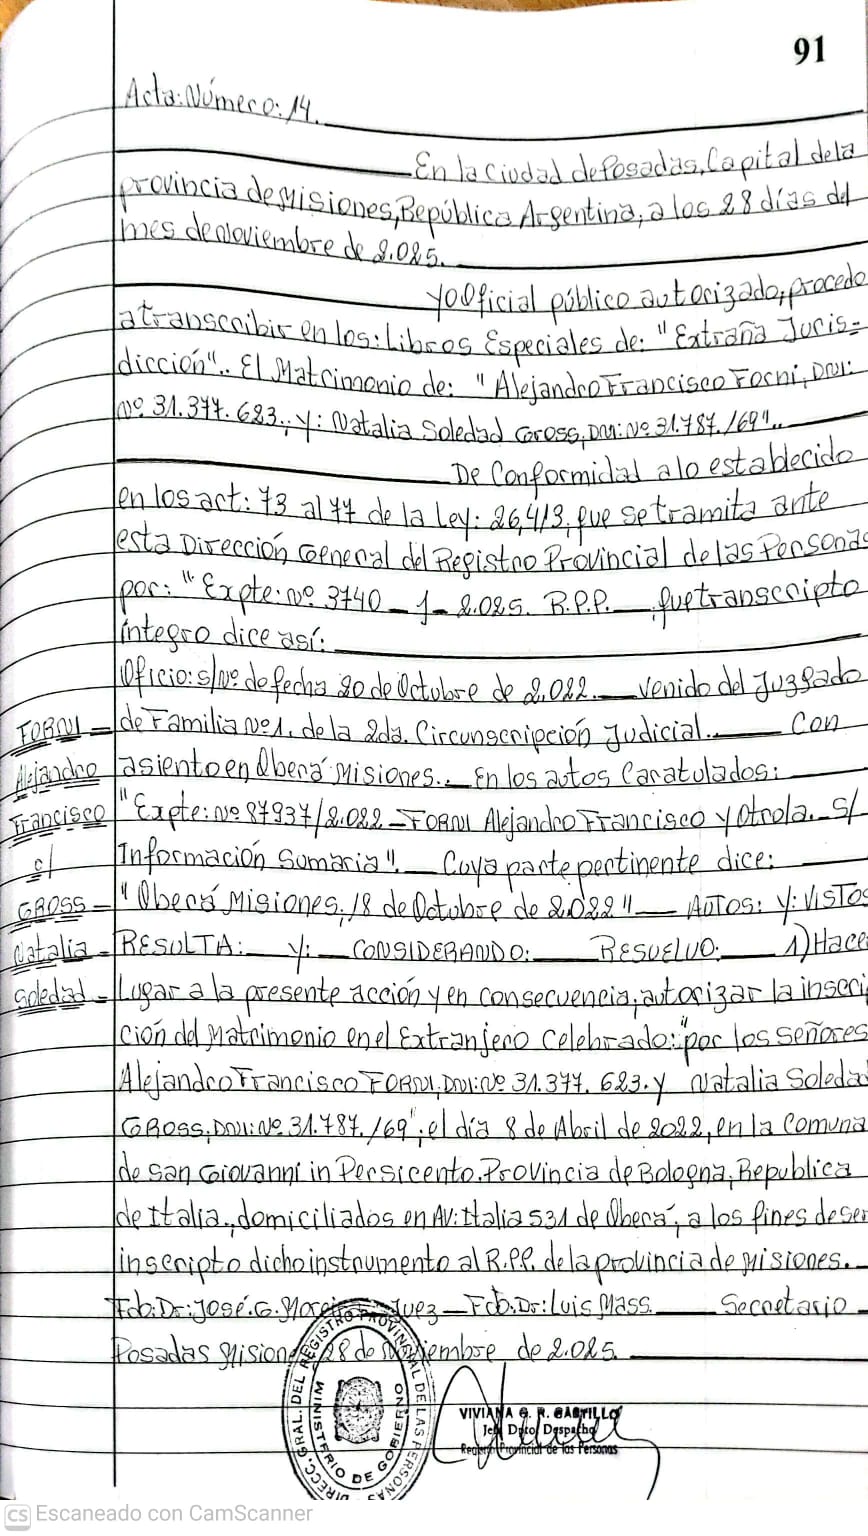 91
Acta: Número: 14.
En la Ciudad de Posadas, Capital de la
provincia de Misiones, República Argentina, a los 28 días del
mes de Noviembre de 2.025.
yo Oficial público autorizado, procedo
a transcribir en los: Libros Especiales de: "Extraña Juris=
dicción".. El Matrimonio de: "Alejandro Francisco Forni, DNI:
Nº 31.377.623., y: Natalia Soledad Gross, DNI: Nº 31.787.169"..
De Conformidad a lo establecido
en los art: 73 al 77 de la Ley: 26,413, que se tramita ante
esta Dirección General del Registro Provincial de las Personas
por: "Expte: Nº 3740 - 1 - 2.025. R.P.P. — , que transcripto
íntegro dice así:
Oficio: s/Nº de fecha 20 de Octubre de 2.022. — venido del Juzgado
de Familia Nº 1. de la 2da. Circunscripción Judicial. — Con
asiento en Oberá Misiones.. En los autos Caratulados:
"Expte: Nº 87937/2.022 - FORNI Alejandro Francisco y Otro/a. S/
Información Sumaria". — Cuya parte pertinente dice:
"Oberá Misiones, 18 de Octubre de 2.022" — AUTOS: Y: VISTOS
RESULTA: — Y: — CONSIDERANDO: — RESUELVO: — 1) Hacer
Lugar a la presente acción y en consecuencia, autorizar la inscri
ción del Matrimonio en el Extranjero Celebrado: "por los señores
Alejandro Francisco FORNI, DNI: Nº 31.377.623. y Natalia Soledad
GROSS, DNI: Nº 31.787.169", el día 8 de Abril de 2022, en la Comuna
de San Giovanni in Persicento. Provincia de Bologna, Republica
de Italia., domiciliados en AV: Italia 531 de Oberá, a los fines de ser
inscripto dicho instrumento al R.P.P. de la provincia de Misiones..
Fdo: Dr: José. G. Juez — Fdo: Dr: Luis Mass. — Secretario —
Posadas Misiones, 28 de Noviembre de 2.025.
FORNI =
Alejandro
Francisco
c/
GROSS =
Natalia =
Soledad =
DIRECC. GRAL. DEL REGISTRO PROVINCIAL DE LAS PERSONAS
MINISTERIO DE GOBIERNO
VIVIANA G. R. CASTILLO
Jefe Dpto Despacho
Registro Provincial de las Personas
CS Escaneado con CamScanner